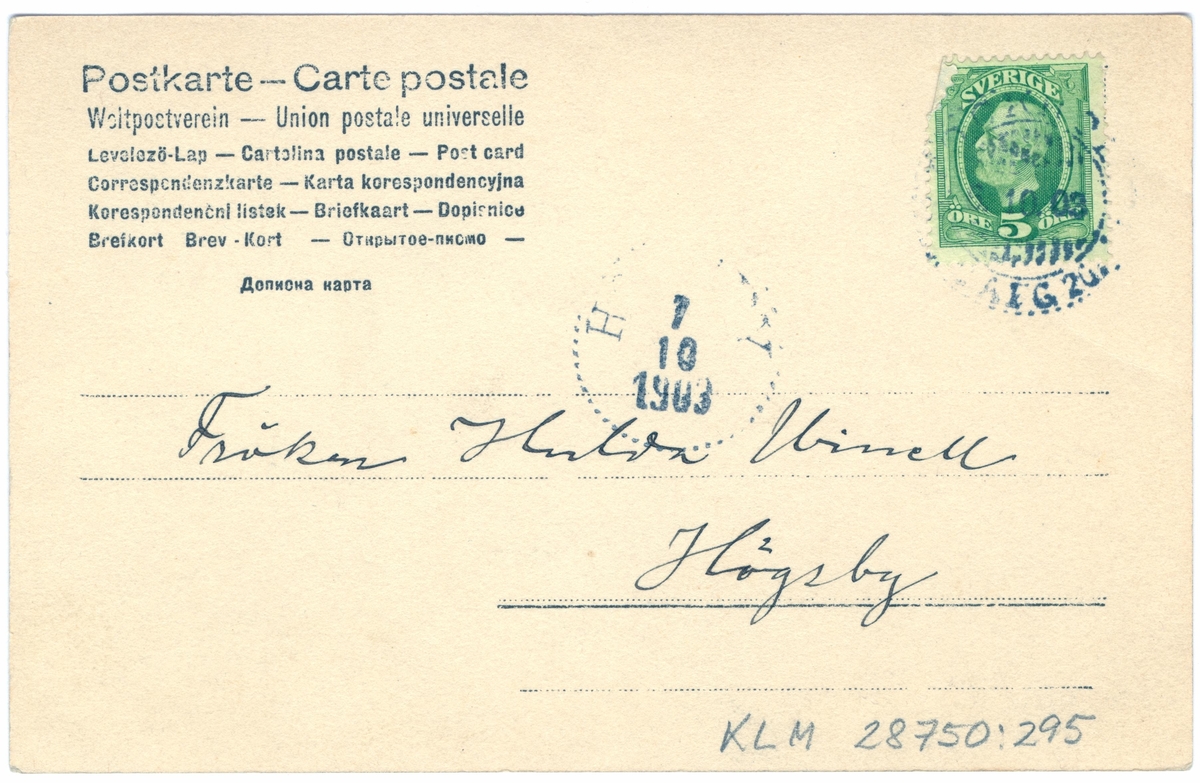 Postkarte — Carte postale
Weltpostverein — Union postale universelle
Levelező-Lap — Cartolina postale — Post card
Correspondenzkarte — Karta korespondencyjna
Korespondenční listek — Briefkaart — Dopisnice
Brefkort Brev-Kort — Открытое-писмо —
Дописна карта
SVERIGE
ÖRE 5 ÖRE
10 03
7
10
1903
Fröken Hulda Winell
Högsby
KLM 28750:295